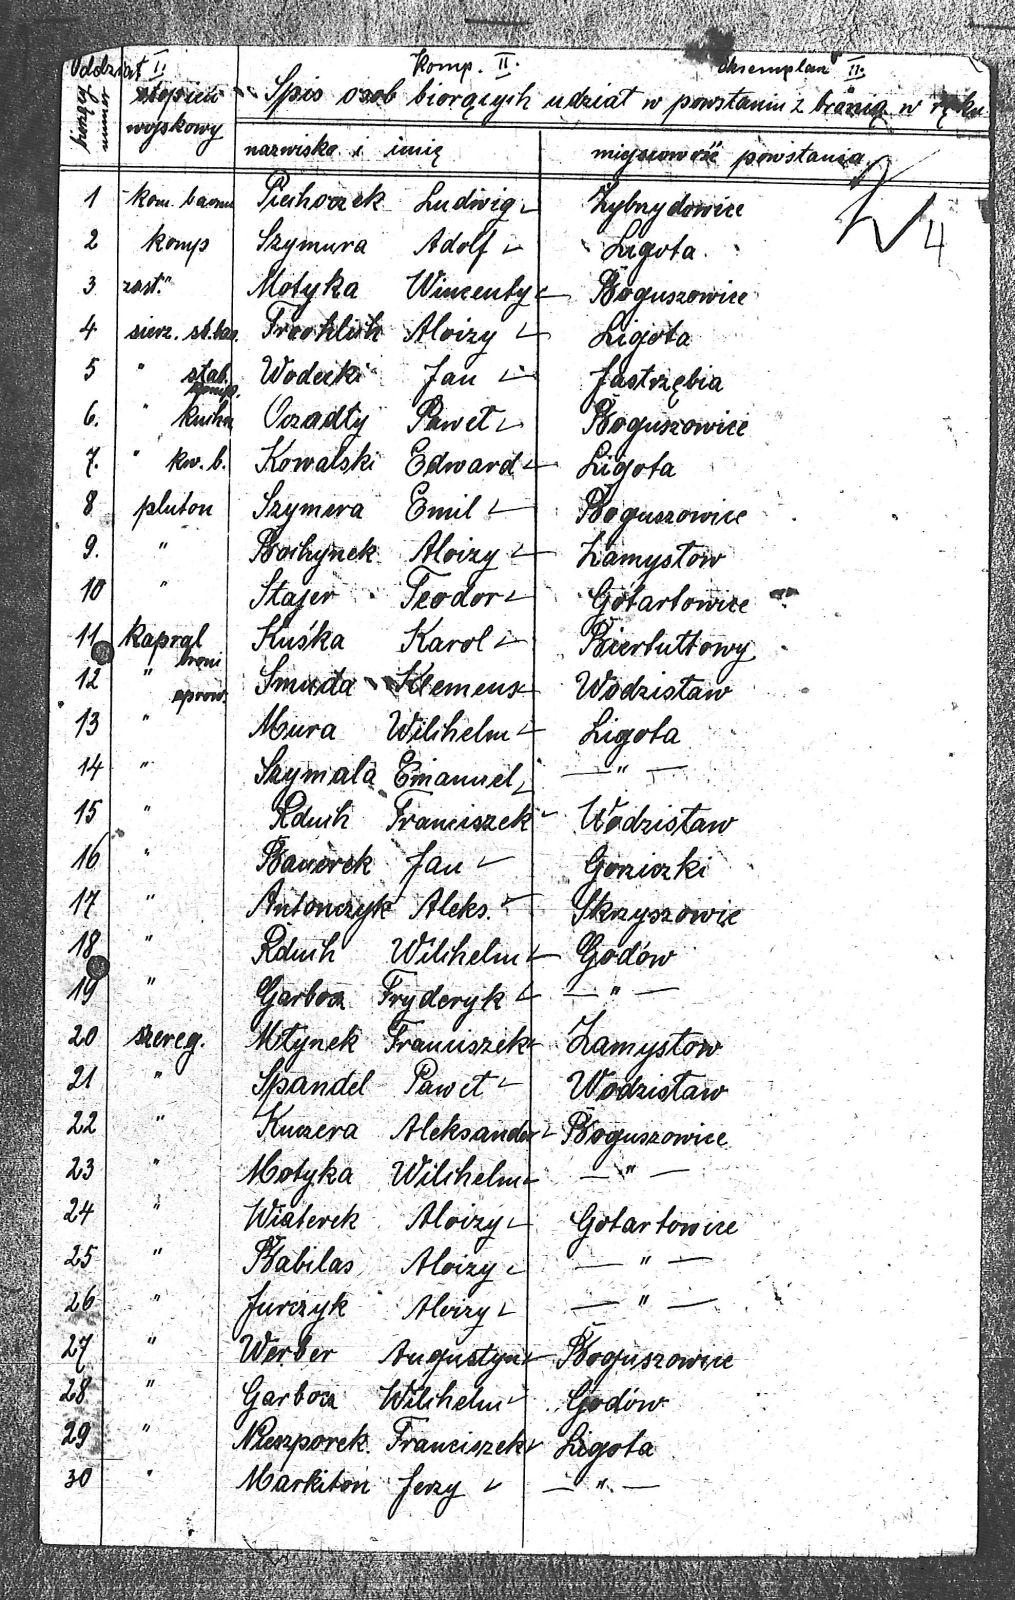 Oddział II Komp. II. Eksemplarz II.
bieżący numer stopień wojskowy Spis osob biorących udział w powstaniu z bronią w ręku
nazwisko i imię miejscowość powstania
4
1 kom. baonu Piechoczek Ludwig Zybrzydowice
2 komp Szymura Adolf Ligota
3 zast. " Motyka Wincenty Boguszowice
4 sierz. st.bao. Froehlich Aloizy Ligota
5 " stab. komp. Wodecki Jan Jastrzębia
6. " kuchn Oczadły Paweł Boguszowice
7. " kw. b. Kowalski Edward Ligota
8 pluton Szymura Emil Boguszowice
9. " Bochynek Aloizy Zamysłow
10 " Stajer Teodor Gotartowice
11 kapral Kuśka Karol Biertułtowy
12 " broni oprow. Smuda Klemens Wodzisław
13 " Mura Wilchelm Ligota
14 " Szymala Emanuel — " —
15 " Rduch Franciszek Wodzisław
16 " Banerek Jan Gorziczki
17 " Antonczyk Aleks. Skrzyszowic
18 " Rduch Wilchelm Godów
19 " Garbocz Fryderyk — " —
20 szereg. Młynek Franciszek Zamysłow
21 " Spandel Paweł Wodzisław
22 " Kuczera Aleksander Boguszowice
23 " Motyka Wilchelm — " —
24 " Wiaterek Aloizy Gotartowice
25 " Babilas Aloizy — " —
26 " Jurczyk Aloizy — " —
27 " Werber Augustyn Boguszowice
28 " Garbocz Wilchelm Godów
29 " Nieszporek Franciszek Ligota
30 " Markiton Jerzy — " —